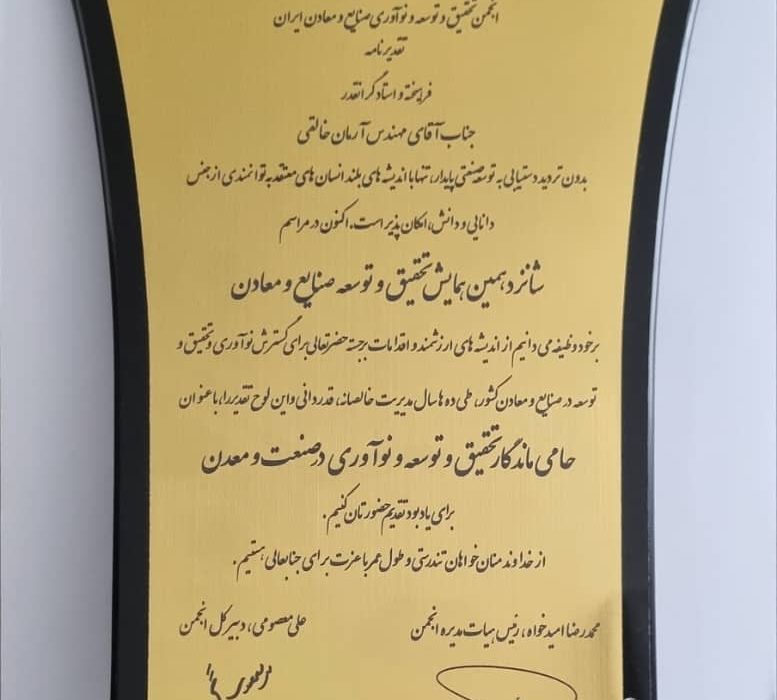 انجمن تحقیق و توسعه و نوآوری صنایع و معادن ایران
تقدیرنامه
فرهیخته و استاد گرانقدر
جناب آقای مهندس آرمان خالقی
بدون تردید دستیابی به توسعه صنعتی پایدار، تنها با اندیشه های بلند انسان های معتقد به توانمندی از جنس
دانایی و دانش، امکان پذیر است. اکنون در مراسم
شانزدهمین همایش تحقیق و توسعه صنایع و معادن
بر خود وظیفه می دانیم از اندیشه های ارزشمند و اقدامات برجسته حضرتعالی برای گسترش نوآوری و تحقیق و
توسعه در صنایع و معادن کشور، طی ده ها سال مدیریت خالصانه، قدردانی و این لوح تقدیر را، با عنوان
حامی ماندگار تحقیق و توسعه و نوآوری در صنعت و معدن
برای یادبود تقدیم حضورتان کنیم.
از خداوند منان خواهان تندرستی و طول عمر با عزت برای جنابعالی هستیم.
محمدرضا امیدخواه، رئیس هیات مدیره انجمن
علی معصومی، دبیر کل انجمن